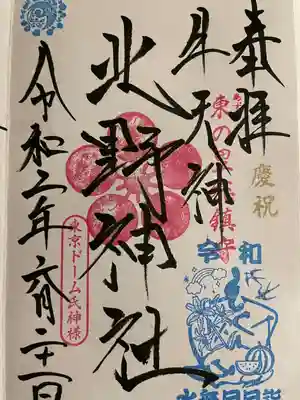 奉拝
慶祝
牛天神
北野神社
東京ドーム氏神様
令和二年六月二十一日
令和